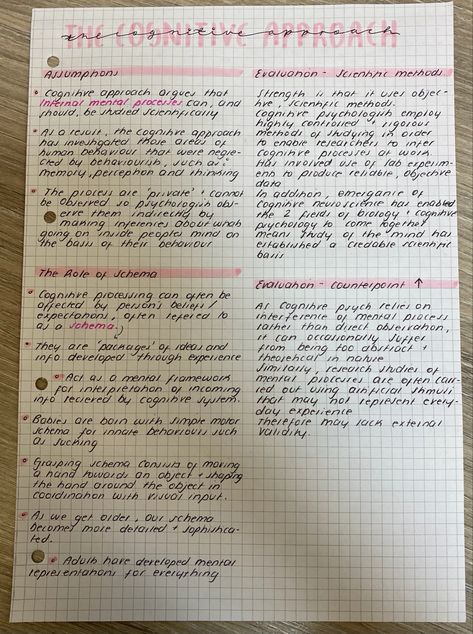 THE COGNITIVE APPROACH
the cognitive approach
Assumptions
• Cognitive approach argues that
internal mental processes can, and
should, be studied scientifically
• As a result, the cognitive approach
has investigated those areas of
human behaviour that were negle-
cted by behaviourism, such as
memory, perception and thinking
• The process are 'private' + cannot
be observed so psychologish obs-
erve them indirectly by
making inferences about whats
going on inside peoples mind on
the basis of their behaviour
The Role of Schema
• Cognitive processing can often be
affected by person's beliefs/
expectations, often refered to
as a schema.
• They are 'packages' of ideas and
info developed through experience
• Act as a mental framework
for interpretation of incoming
info recieved by cognitive system.
• Babies are born with simple motor
schema for innate behaviours such
as sucking
• Grasping schema consists of moving
a hand towards an object + shaping
the hand around the object in
coordination with visual input.
• As we get older, our schema
becomes more detailed + sophistica-
ted.
• Adults have developed mental
representations for everything
Evaluation - Scientific methods
Strength is that it uses objec-
tive, scientific methods.
Cognitive psychologish employ
highly controlled + rigorous
methods of studying in order
to enable researchers to infer
cognitive processes at work.
Has involved use of lab experim-
ents to produce reliable, objective
data
In addition, emergance of
cognitive neuroscience has enabled
the 2 fields of biology + cognitive
psychology to come together
means study of the mind has
established a credable scientific
basis
Evaluation - counterpoint ↑
As cognitive psych relies on
interference of mental process
rather than direct observation,
it can occasionally suffer
from being too abstract +
theoretical in nature
Similarly, research studies of
mental processes are often carr-
ied out using artificial stimuli
that may not represent every-
day experience
Therefore may lack external
validity.